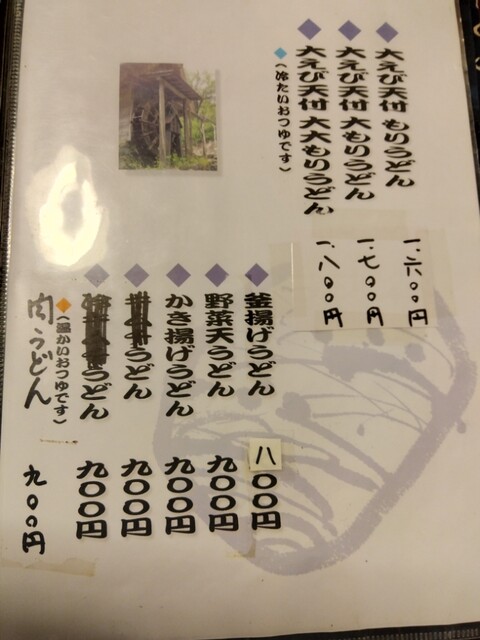 大えび天付 もりうどん
大えび天付 大もりうどん
大えび天付 大大もりうどん
(冷たいおつゆです)
一、六〇〇円
一、七〇〇円
一、八〇〇円
釜揚げうどん
野菜天うどん
かき揚げうどん
うどん
うどん
(温かいおつゆです)
肉うどん
八〇〇円
九〇〇円
九〇〇円
九〇〇円
九〇〇円
九〇〇円